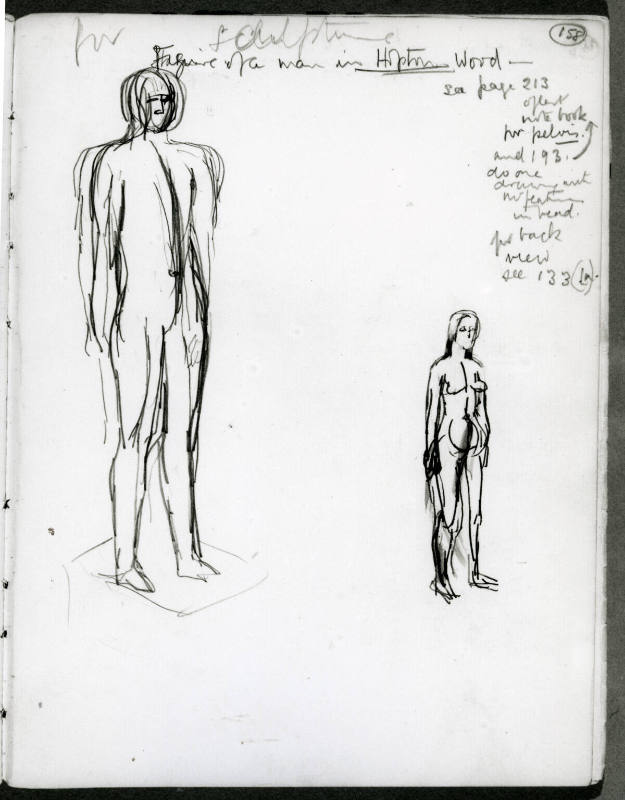 158
for sculpture
Figure of a man in Hopton Wood —
see page 213
of last
note book
for pelvis.
and 193.
do one
drawing with
no features
in head.
for back
view
see 133